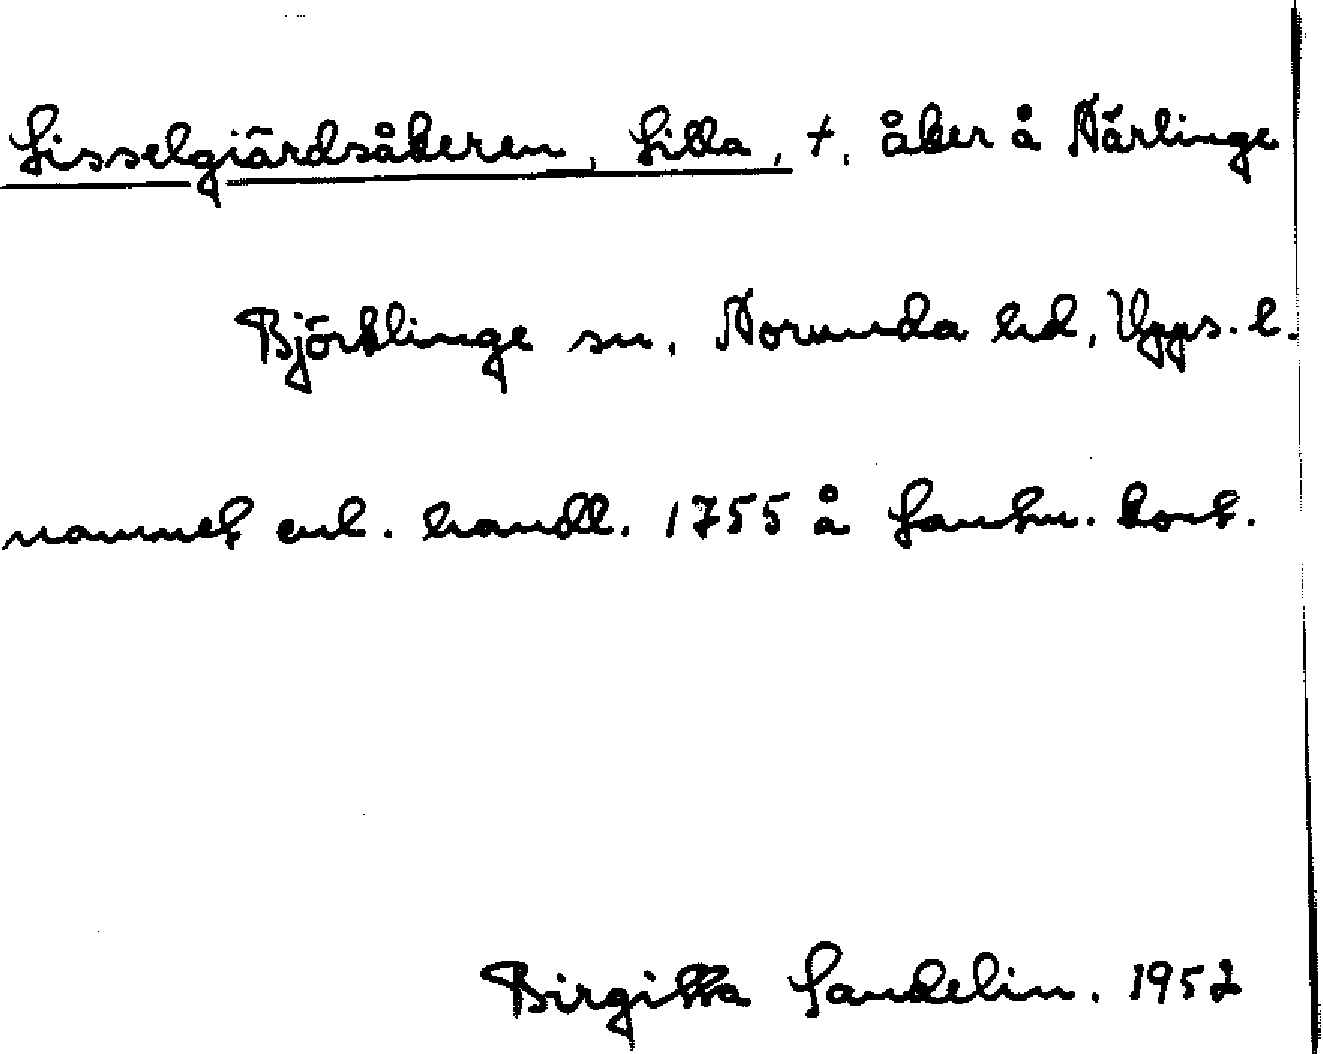 Lisselgiärdsåkeren, Lilla, †. åker å Närlinge
Björklinge sn, Norunda hd, Upps. l.
namnet enl. handl. 1755 å Lantm. kont.
Birgitta Landelin. 1952